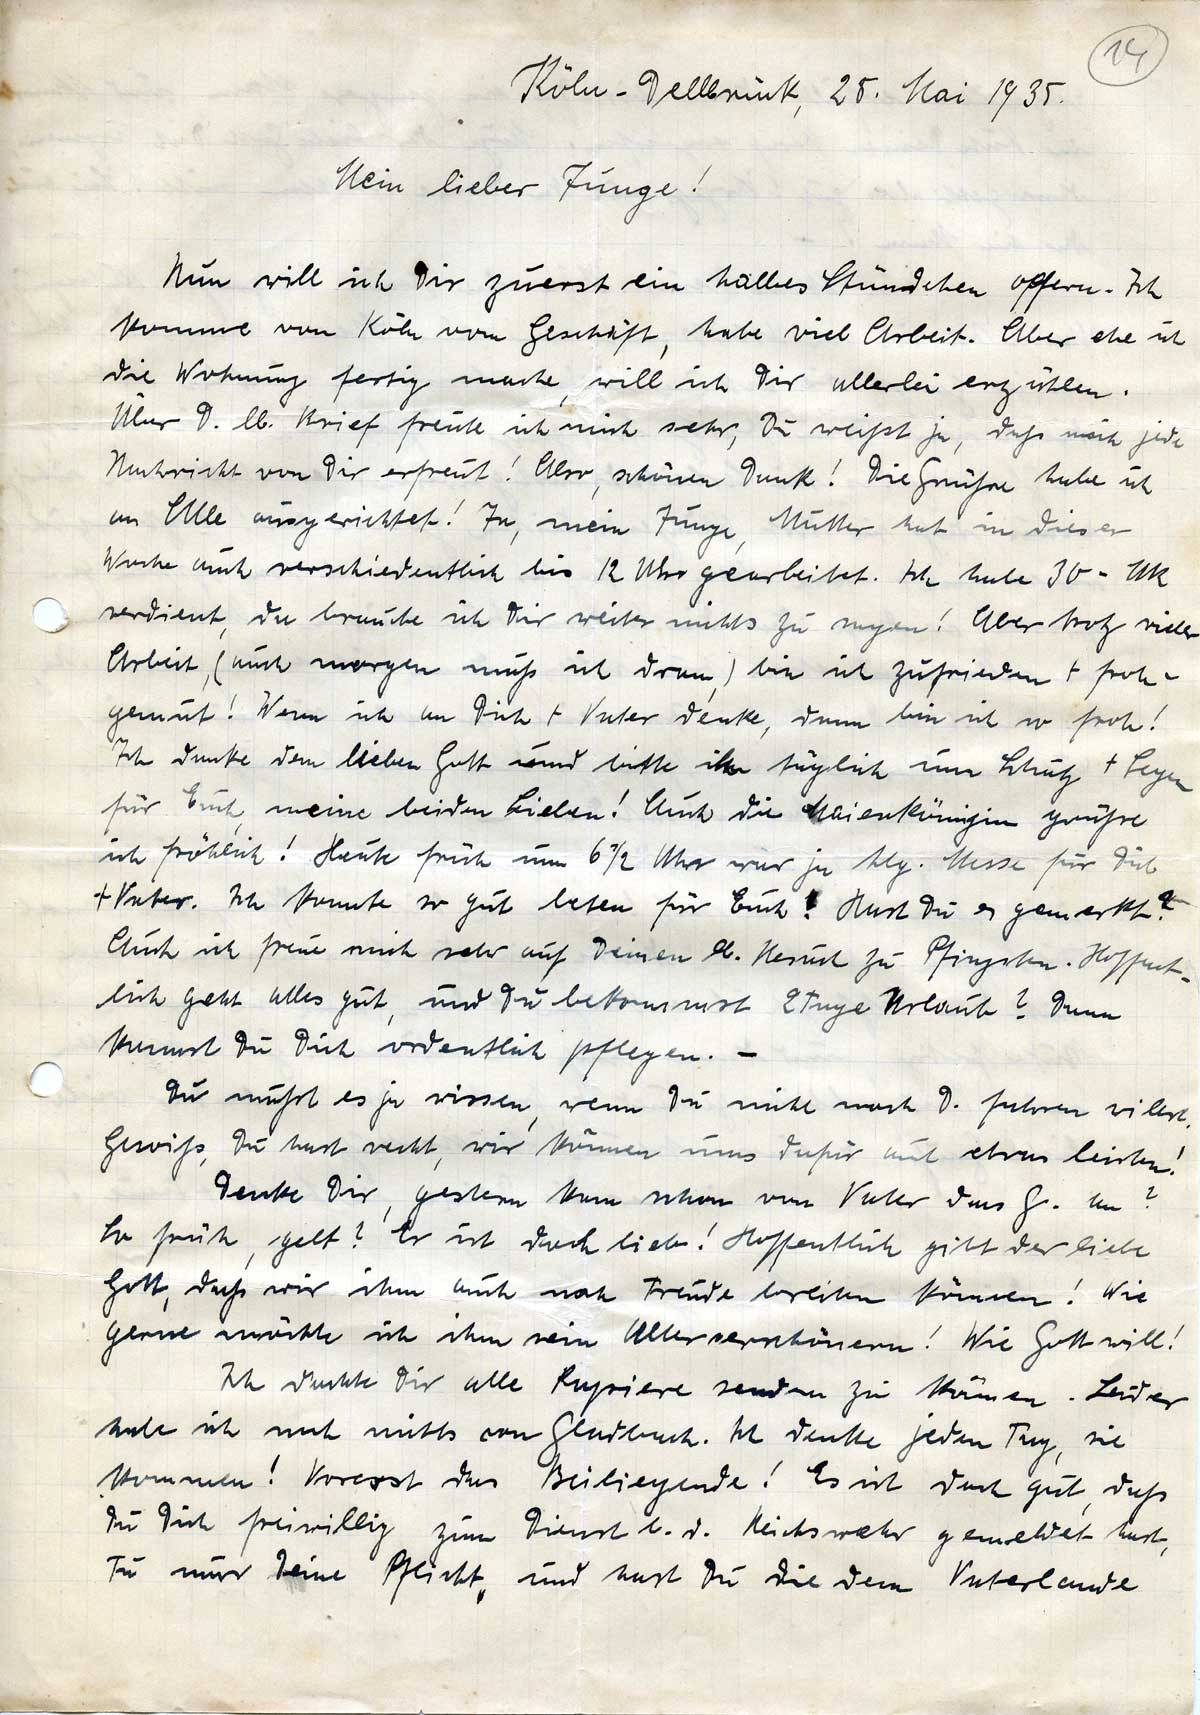 14
Köln-Dellbrück, 25. Mai 1935.
Mein lieber Junge!
Nun will ich Dir zuerst ein halbes Stündchen opfern. Ich
komme von Köln vom Geschäft, habe viel Arbeit. Aber ehe ich
die Wohnung fertig mache, will ich Dir allerlei erzählen.
Über D. lb. Brief freute ich mich sehr, Du weißt ja, daß mich jede
Nachricht von Dir erfreut! Also, schönen Dank! Die Grüße habe ich
an Alle ausgerichtet! Ja, mein Junge, Mutter hat in dieser
Woche auch verschiedentlich bis 12 Uhr gearbeitet. Ich habe 30 - Mk
verdient, da brauche ich Dir weiter nichts zu sagen! Aber trotz vieler
Arbeit, (auch morgen muß ich dran,) bin ich zufrieden + froh-
gemut! Wenn ich an Dich + Vater denke, dann bin ich so froh!
Ich danke dem lieben Gott und bitte ihn täglich um Schutz + Segen
für Euch, meine beiden Lieben! Auch die Maienkönigin grüße
ich fröhlich! Heute früh um 6 1/2 Uhr war ja hlg. Messe für Dich
+ Vater. Ich konnte so gut beten für Euch! Hast Du es gemerkt?
Auch ich freue mich sehr auf Deinen lb. Besuch zu Pfingsten. Hoffent-
lich geht alles gut, und Du bekommst 2 Tage Urlaub? Dann
kannst Du Dich ordentlich pflegen. -
Du mußt es ja wissen, wenn Du nicht nach D. fahren willst.
Gewiß, Du hast recht, wir können uns dafür mal etwas leisten!
Denke Dir, gestern kam schon von Vater das G. an?
So früh, gelt? Er ist doch lieb! Hoffentlich gibt der liebe
Gott, daß wir ihm auch noch Freude bereiten können! Wie
gerne möchte ich ihm sein Alter verschönern! Wie Gott will!
Ich dachte Dir alle Papiere senden zu können. Leider
habe ich noch nichts von Gladbach. Ich denke jeden Tag, sie
kommen! Vorerst das Beiliegende! Es ist doch gut, daß
Du Dich freiwillig zum Dienst b. d. Reichswehr gemeldet hast,
Tu nur Deine Pflicht, und hast Du die dem Vaterlande